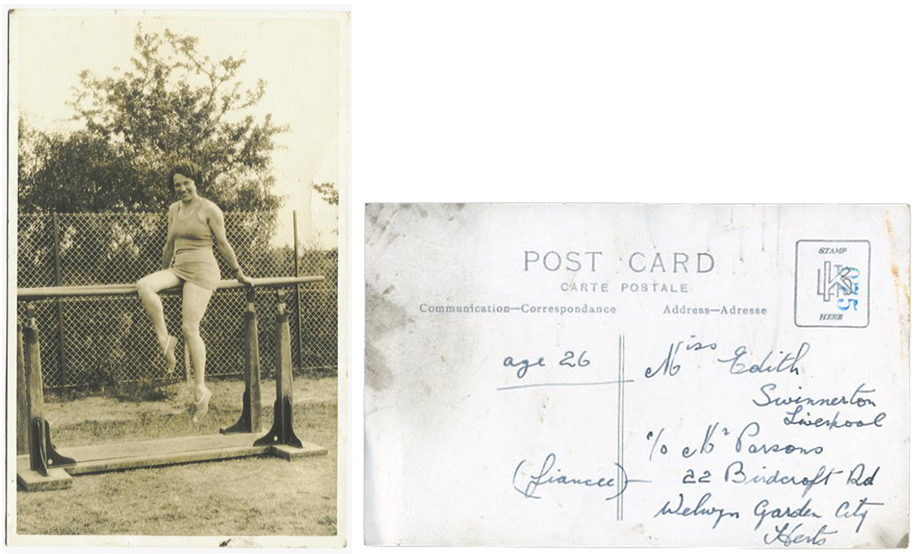 POST CARD
CARTE POSTALE
Communication—Correspondance
Address—Adresse
STAMP
HERE
age 26
Miss Edith
Swinnerton
Liverpool
c/o Mr Parsons
(fiancee)
22 Birdcroft Rd
Welwyn Garden City
Herts